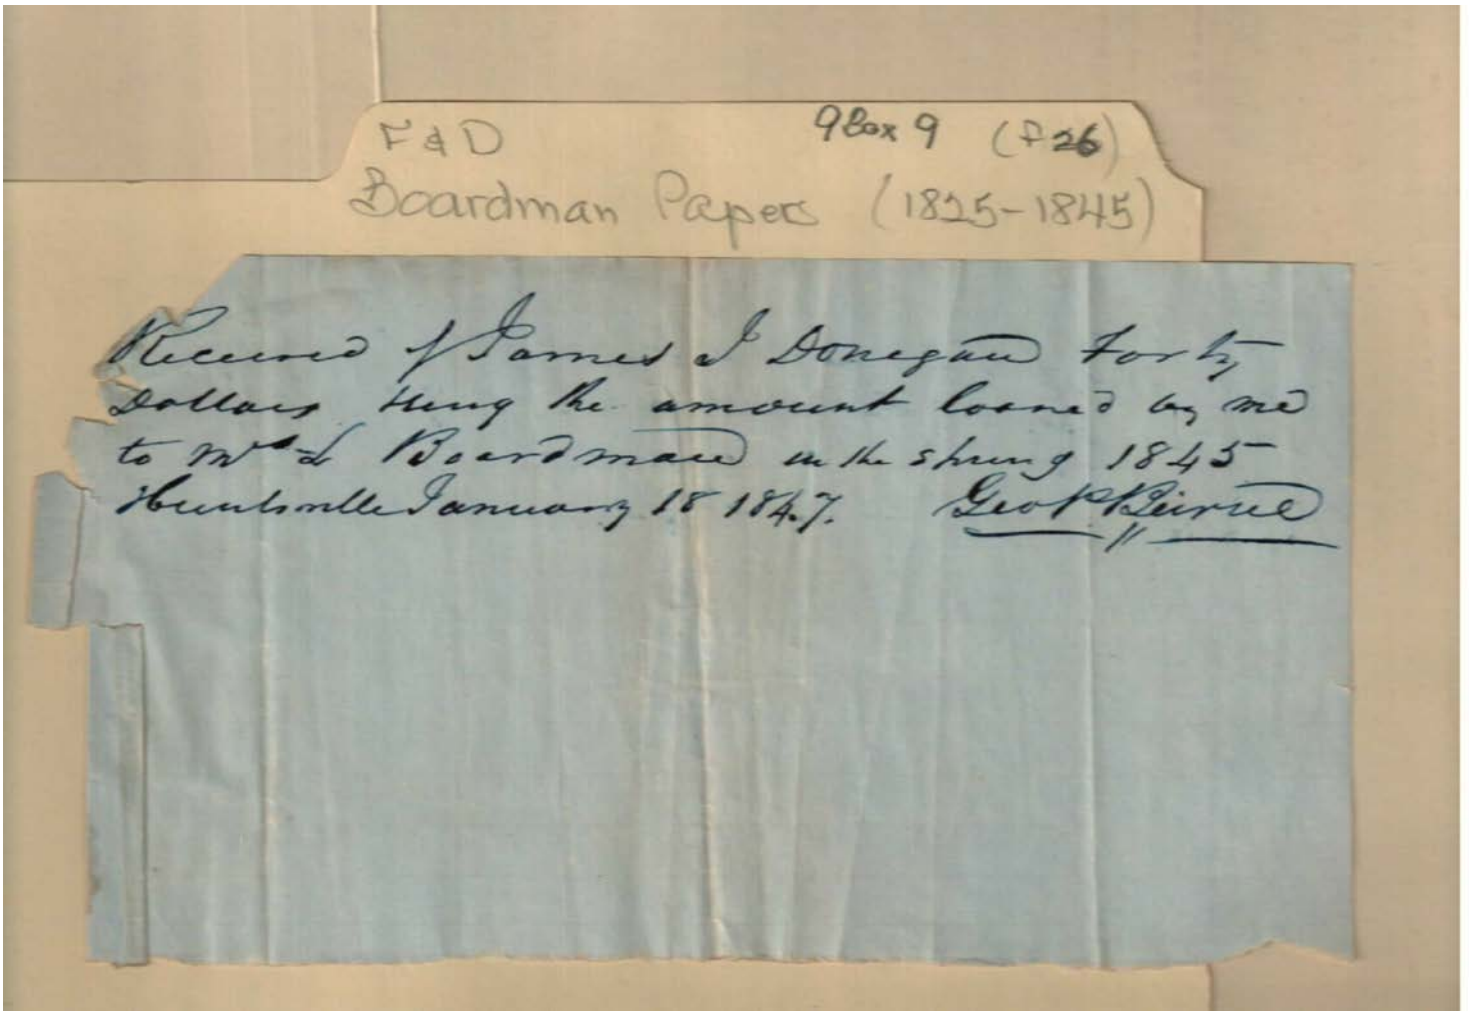 F & D 9 Box 9 (f 26)
Boardman Papers (1825-1845)
Received of James J Donegan Forty
Dollars being the amount loaned by me
to Mrs L Boardman in the spring 1845
Huntsville January 18 1847. Geo P Beirne